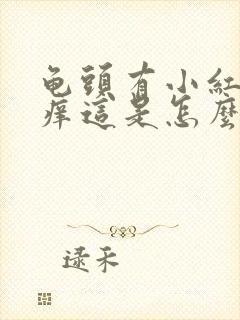 龟頭有小紅
痒這是怎麼
逯禾